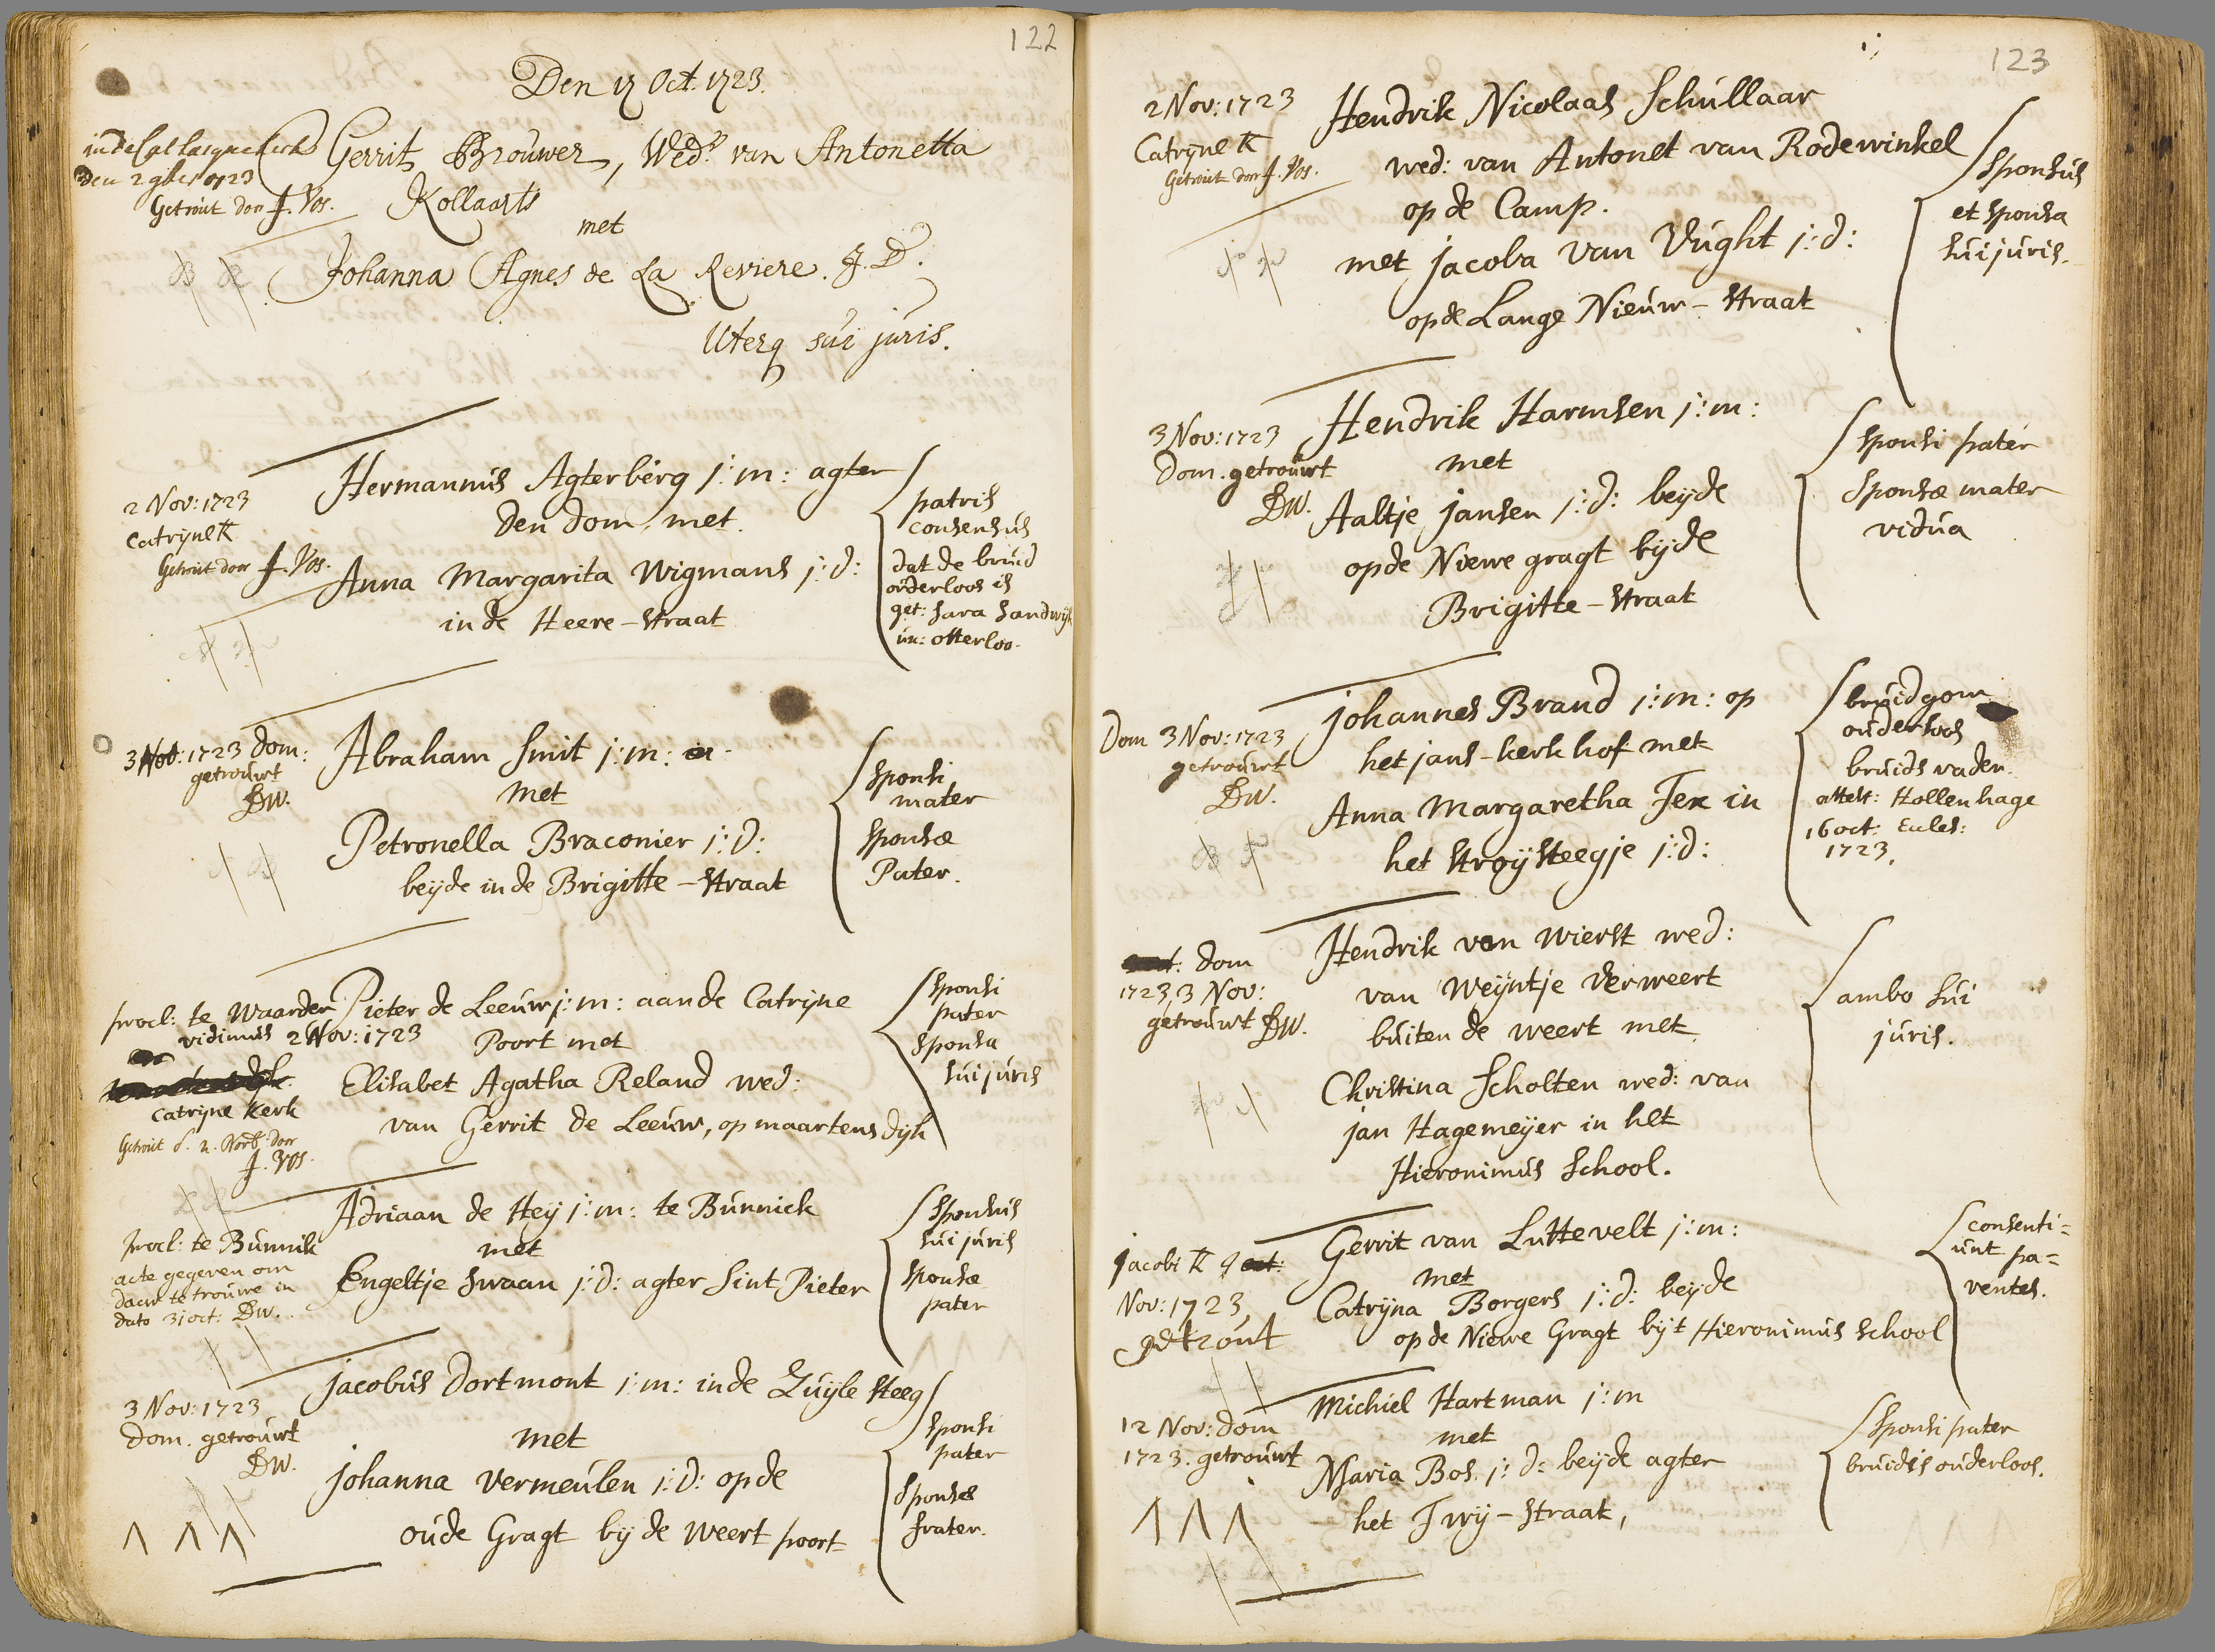 122
Den 17 Oct. 1723.
den 2 9ber 1723
Getrout door J. Vos.
Gerrit Brouwer, Wedr. van Antonetta
Kollaarts
met
Johanna Agnes de La Reviere. J. D.
Uterq sui juris.
2 Nov: 1723
Catryne K
Getrout door J. Vos.
Hermannus Agterberg j: m: agter
den dom met
Anna Margarita Wigmans j: d:
in de Heere-straat
patris
consensus
dat de bruid
oúderloos is
get: Sara Sandwijk
un: otterloo.
3 Nov: 1723 dom:
getrouwt
DW.
Abraham Smit j: m:
met
Petronella Braconier j: d:
beijde in de Brigitte-straat
sponsi
mater
sponsæ
Pater.
procl: te Waarder
vidimus 2 Nov: 1723
Catryne Kerk
Getrout d. 2. Novb door
J. Vos.
Pieter de Leeuw j: m: aan de Catryne
Poort met
Elisabet Agatha Reland wed:
van Gerrit de Leeuw, op maartensdijk
sponsi
pater
sponsa
sui juris
procl: te Bunnik
acte gegeven om
daer te trouwe in
dato 31 oct: DW.
Adriaan de Heij j: m: te Bunnick
met
Engeltje Swaan j: d: agter Sint Pieter
Sponsus
sui juris
sponsæ
pater
3 Nov: 1723
dom. getrouwt
DW.
Jacobus Dortmont j: m: in de Zuijle steeg
met
Johanna Vermeulen j: d: op de
oude Gragt bij de Weert poort
sponsi
pater
Sponsæ
frater.
123
2 Nov: 1723
Catryne K
Getrout door J. Vos.
Hendrik Nicolaas Schullaar
wed: van Antonet van Rodewinkel
op de Camp.
met Jacoba van Vught j: d:
op de Lange Nieuw-straat
Sponsus
et sponsa
sui juris.
3 Nov: 1723
Dom. getrouwt
DW.
Hendrik Harmsen j: m:
met
Aaltje Jansen j: d: beijde
op de Niewe gragt bij de
Brigitte-straat
Sponsi pater
Sponsæ mater
vidua
Dom 3 Nov: 1723
getrouwt
DW.
Johannes Brand j: m: op
het jans-kerkhof met
Anna Margaretha Fex in
het stroijsteegje j: d:
bruidgom
ouderloos
bruids vader.
attest: Hollenhage
16 oct:
1723.
dom
1723, 3 Nov:
getrouwt DW.
Hendrik van Wierst wed:
van Weijntje Verweert
buiten de weert met
Christina Scholten wed: van
Jan Hagemeijer in het
Hieronimus School.
ambo sui
juris.
Jacobi K 9
Nov: 1723,
getrout
Gerrit van Luttevelt j: m:
met
Catrijna Borgers j: d: beijde
op de Niewe Gragt bij 't Hieronimus school
consenti=
unt pa=
rentes.
12 Nov: dom
1723. getrouwt
Michiel Hartman j: m
met
Maria Bos. j: d: beijde agter
het Twij-straat,
Sponsi pater
bruid is ouderloos.